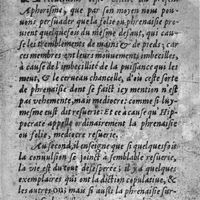 Aphorisme, que par son moyen nous pou-
uons persuader que la folie ou phrenaisie pro
uient quelquesfois du mesme defaut, qui cau
se les tremblemens de mains & de pieds; car
ces membres ont leurs mouuemens imbecilles,
à cause de l'imbecillité de la puissance qui les
meut, & le cerueau chancelle, d'où ceste sorte
de phrenaisie dont se faict icy mention n'est
pas vehemente, mais mediocre: comme si luy-
mesme eust dit resuerie: Et c'est à cause qu'Hip
pocrate appelle ordinairement la phrenaisie
ou folie, mediocre resuerie.
Au second, il enseigne que si quelquesfois
la conuulsion se joinct à semblable resuerie,
la vie est du tout desesperée; il y a quelques
exemplaires qui ont la diction copulatiue, &
les autres ou; mais si aussi la phrenaisie sur-